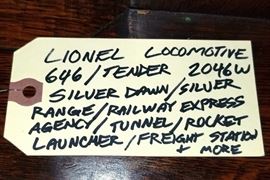 LIONEL LOCOMOTIVE
646/TENDER 2046W
SILVER DAWN/SILVER
RANGE/RAILWAY EXPRESS
AGENCY/TUNNEL/ROCKET
LAUNCHER/FREIGHT STATION
+ MORE